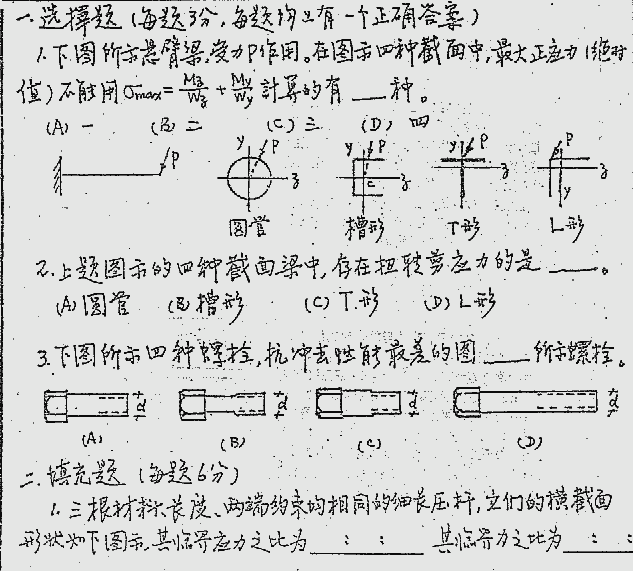 一.选择题（每题3分，每题均只有一个正确答案）
1.下图所示悬臂梁,受力P作用。在图示四种截面中,最大正应力(绝对
值)不能用σmax=Mz/Wz+My/Wy计算的有___种。
(A) 一 (B) 二 (C) 三 (D) 四
P y P z y P z c y P z P z y
圆管 槽形 T形 L形
2.上题图示的四种截面梁中,存在扭转剪应力的是___。
(A)圆管 (B)槽形 (C)T形 (D)L形
3.下图所示四种螺栓,抗冲击性能最差的图___所示螺栓。
d d d d
(A) (B) (C) (D)
二.填充题（每题6分）
1.三根材料、长度、两端约束均相同的细长压杆,它们的横截面
形状如下图示,其临界应力之比为___:___:___ 其临界力之比为___:___: